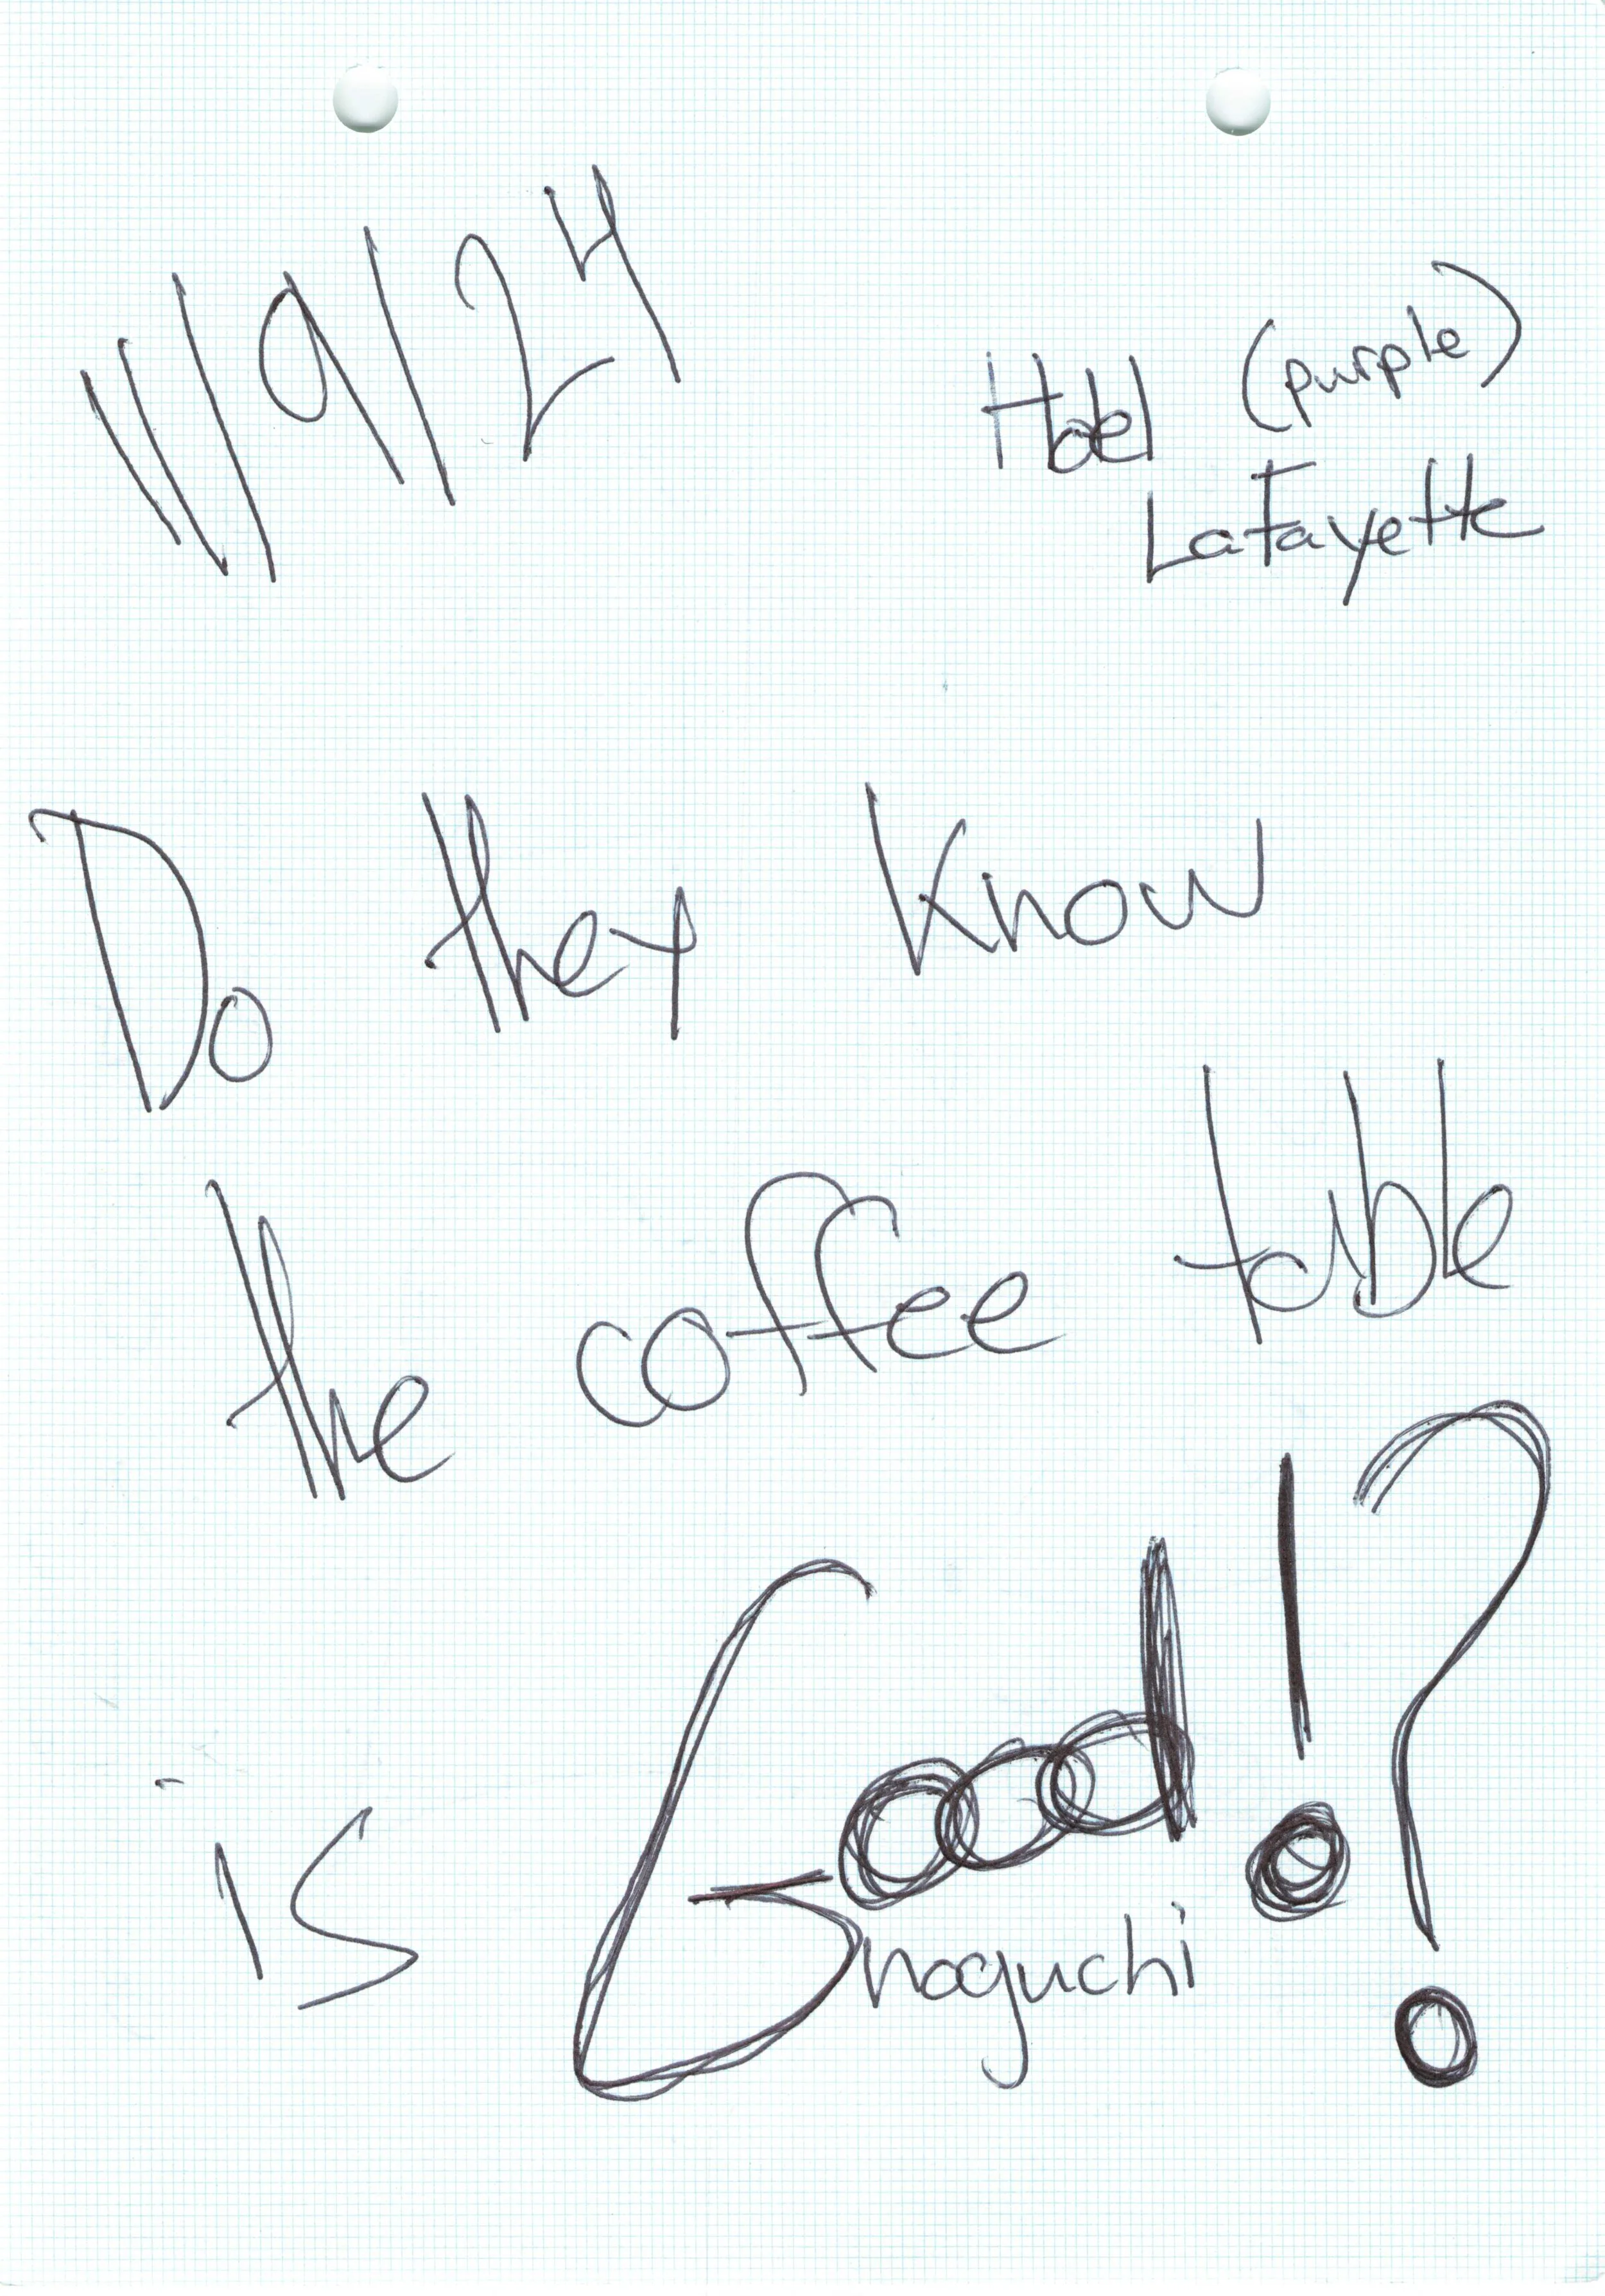 11/9/24
(purple)
Hotel
LaFayette
Do they know
the coffee table
is Good!?
noguchi